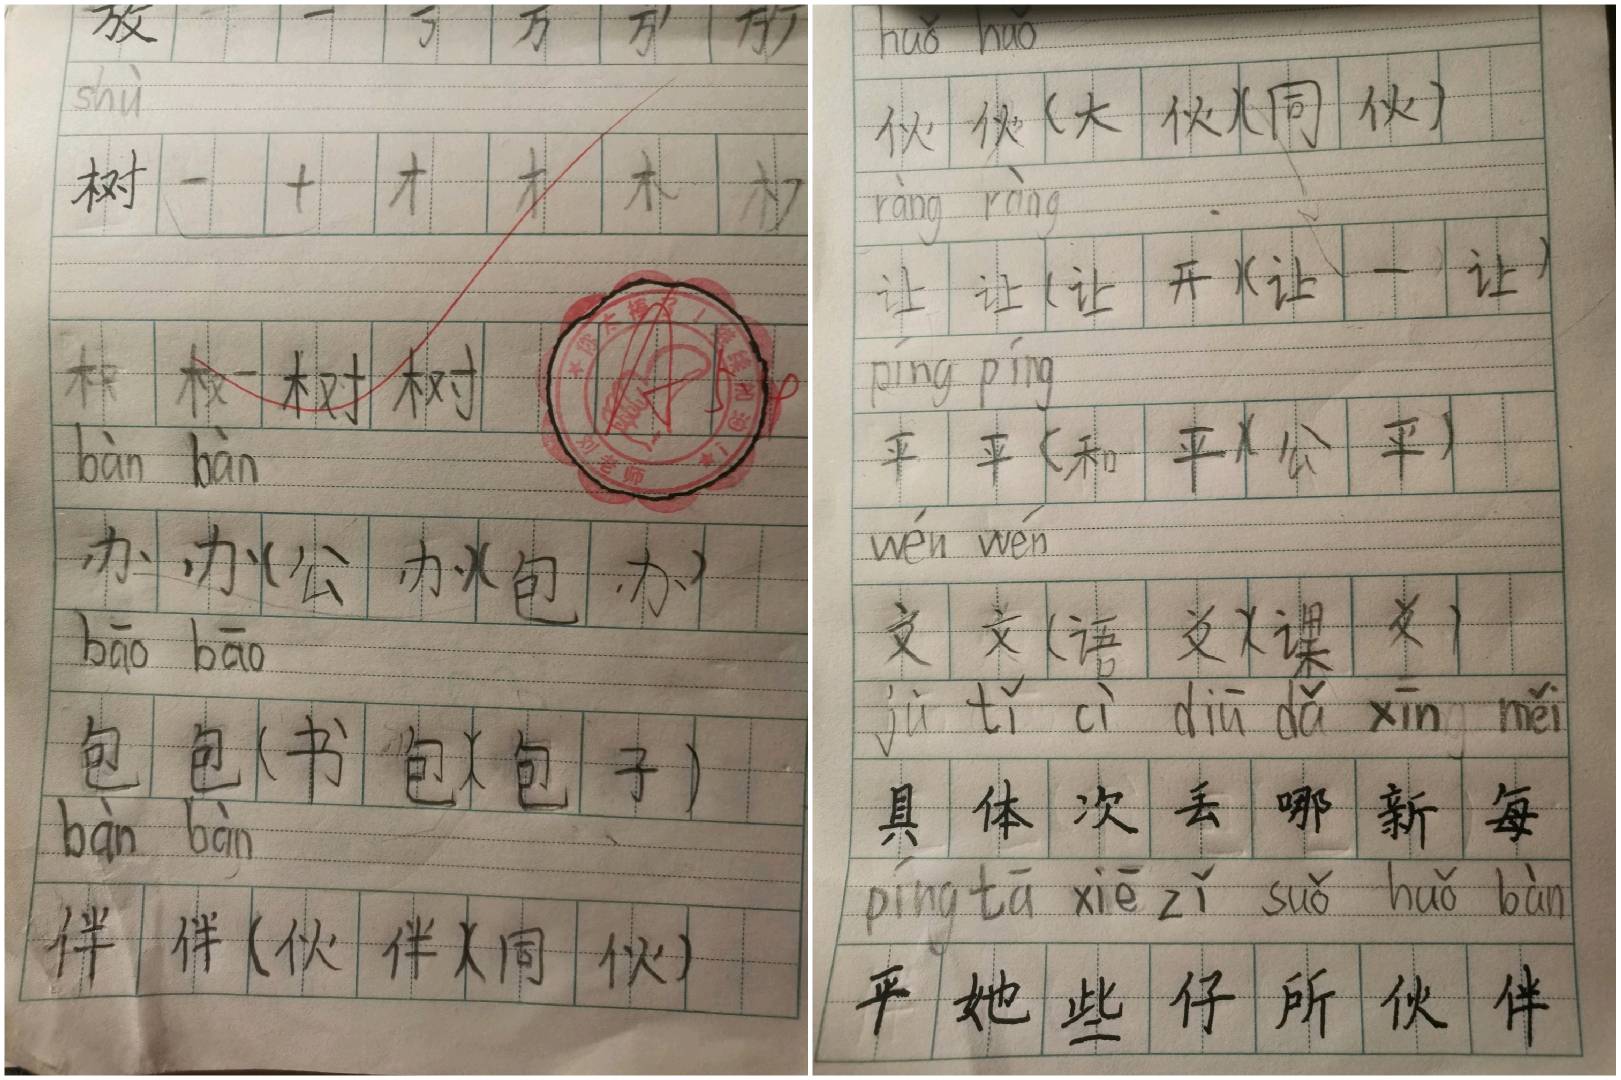 放 一 丁 万 方
shù
树 一 十 才 木 木
权 对 树
bàn bàn
办 办 (公 办)(包 办)
bāo bāo
包 包 (书 包)(包 子)
bàn bàn
伴 伴 (伙 伴)(同 伙)
你太棒了！继续加油！
刘老师
huǒ huǒ
伙 伙 (大 伙)(同 伙)
ràng ràng
让 让 (让 开)(让 一 让)
píng píng
平 平 (和 平)(公 平)
wén wén
文 文 (语 文)(课 文)
jù tǐ cì diū dǎ xīn měi
具 体 次 丢 哪 新 每
píng tā xiē zǐ suǒ huǒ bàn
平 她 些 仔 所 伙 伴